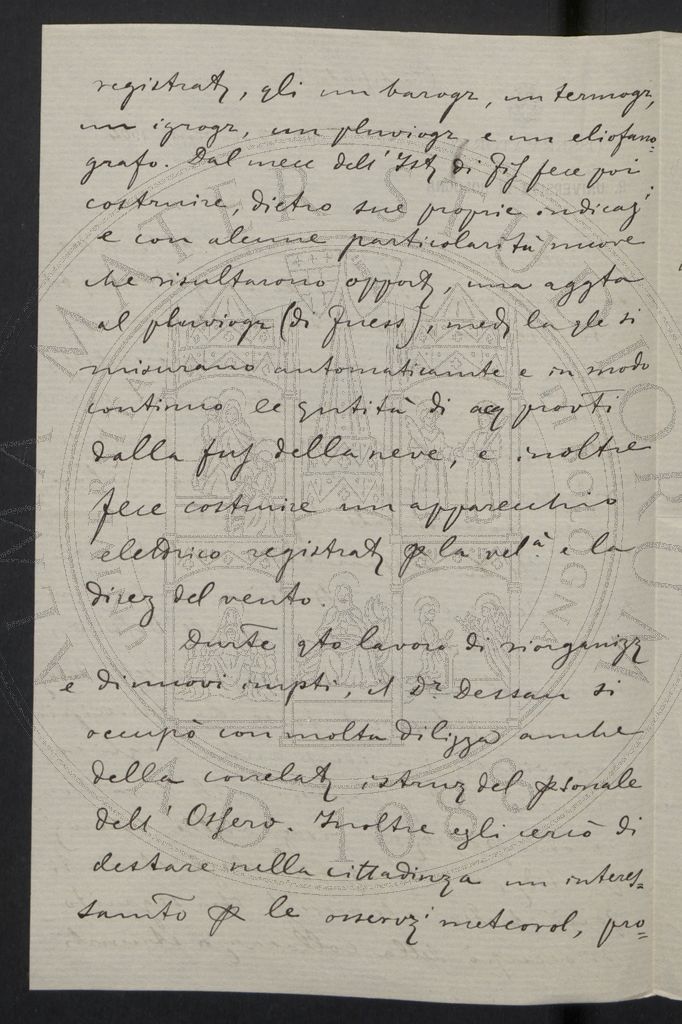 registratz, qli un barogr, un termogr,
un igrogr, un pluviogr e un eliofano=
grafo. Dal mecc dell' Istz di Fis fece poi
costruire, dietro sue proprie indicazi
e con alcune particolarità nuove
che risultarono opportz, una aggta
al pluviogr (di Fuess), medz la qle si
misurano automaticamte e in modo
continuo le qntità di acq provti
dalla fus della neve, e inoltre
fece costruire un apparecchio
elettrico registratz p la vel.à e la
direz del vento.
Durte qto lavoro di riorganizz
e di nuovi impti, il Dr. Dessau si
occupò con molta diligza anche
della correlatz istruz del psonale
dell' Osserv. Inoltre egli cercò di
destare nella cittadinza un interes=
samto p le osservzi meteorol, pro=